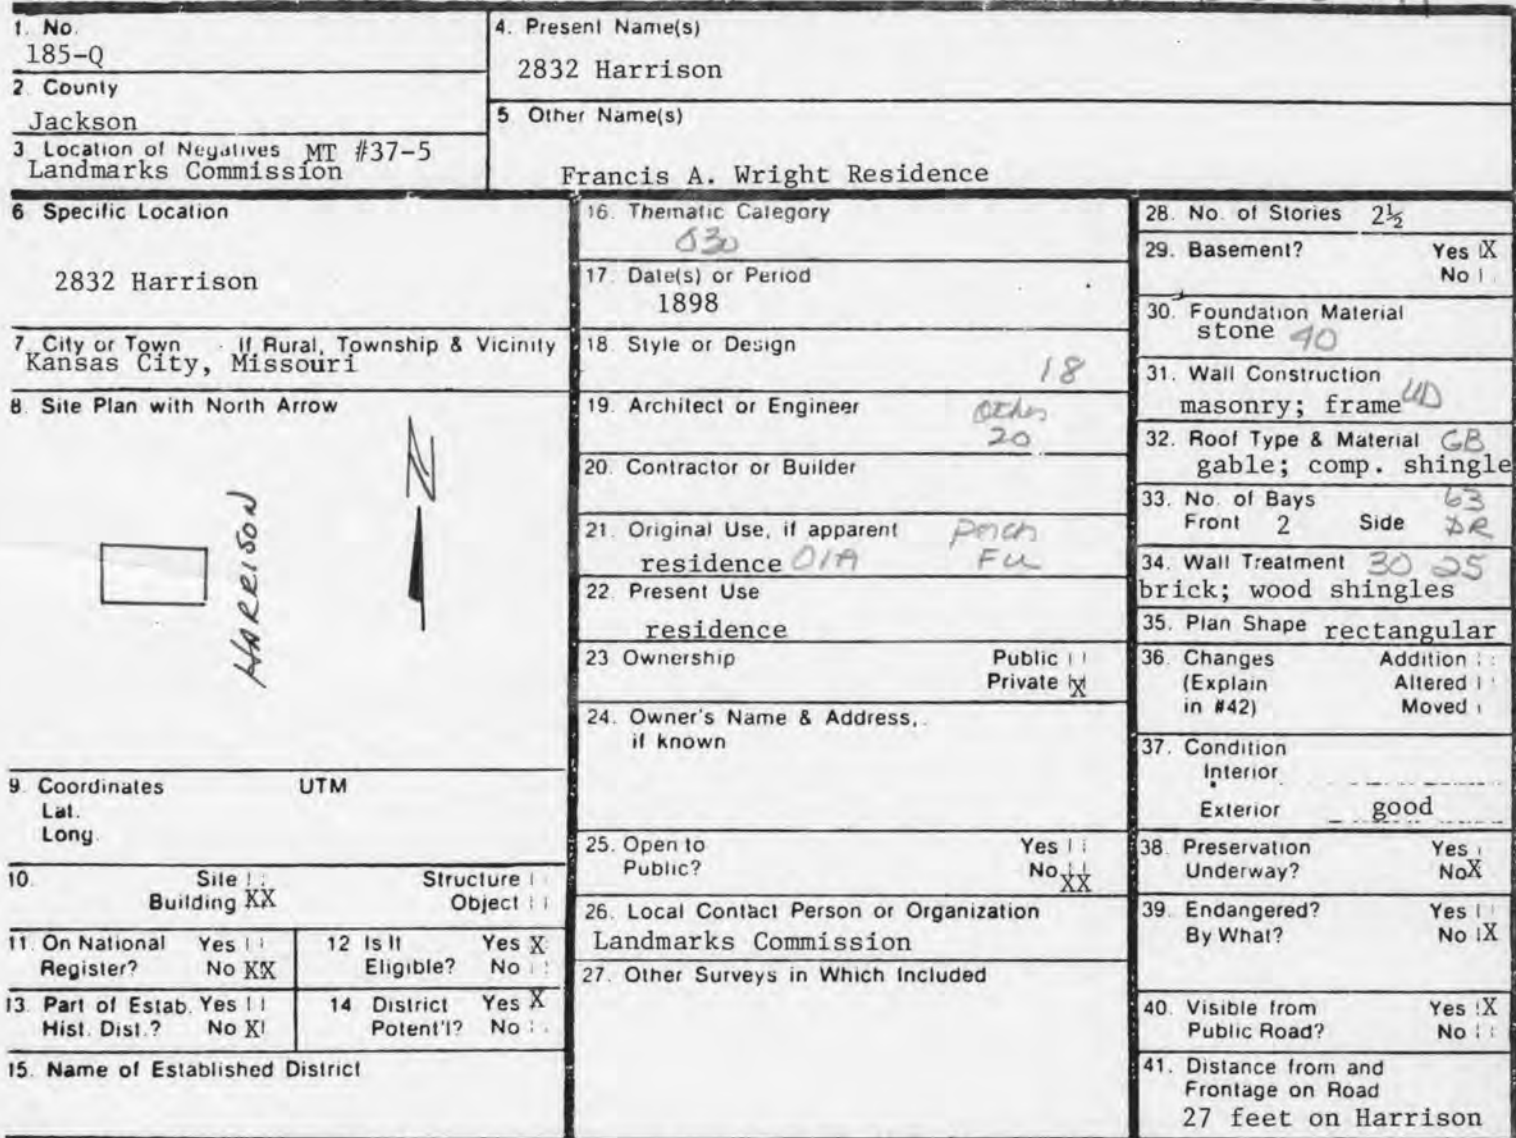 1. No.
185-Q
2. County
Jackson
3 Location of Negatives MT #37-5
Landmarks Commission
4. Present Name(s)
2832 Harrison
5. Other Name(s)
Francis A. Wright Residence
6 Specific Location
2832 Harrison
7. City or Town If Rural, Township & Vicinity
Kansas City, Missouri
8. Site Plan with North Arrow
N
HARRISON
9. Coordinates UTM
Lat.
Long.
10. Site Structure
Building XX Object
11. On National Yes
Register? No XX
12 Is It Yes X
Eligible? No
13. Part of Estab. Yes
Hist. Dist.? No X
14. District Yes X
Potent'l? No
15. Name of Established District
16. Thematic Category
030
17. Date(s) or Period
1898
18. Style or Design
18
19. Architect or Engineer Other
20
20. Contractor or Builder
21. Original Use, if apparent Porch
residence 01A FU
22. Present Use
residence
23 Ownership Public
Private X
24. Owner's Name & Address,
if known
25. Open to Yes
Public? No XX
26. Local Contact Person or Organization
Landmarks Commission
27. Other Surveys in Which Included
28. No. of Stories 2½
29. Basement? Yes X
No
30. Foundation Material
stone 40
31. Wall Construction
masonry; frame
32. Roof Type & Material GB
gable; comp. shingle
33. No. of Bays 63
Front 2 Side DR
34. Wall Treatment 30 25
brick; wood shingles
35. Plan Shape rectangular
36. Changes Addition
(Explain Altered
in #42) Moved
37. Condition
Interior
Exterior good
38. Preservation Yes
Underway? No X
39. Endangered? Yes
By What? No X
40. Visible from Yes X
Public Road? No
41. Distance from and
Frontage on Road
27 feet on Harrison